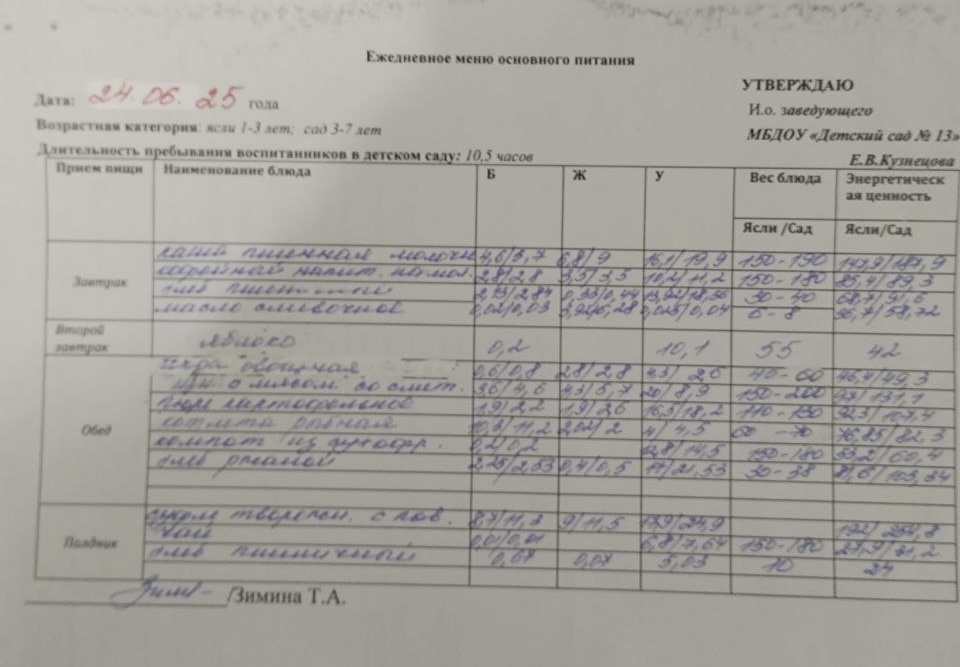 Ежедневное меню основного питания
УТВЕРЖДАЮ
Дата: 24.06.25 года
И.о. заведующего
Возрастная категория: ясли 1-3 лет; сад 3-7 лет
МБДОУ «Детский сад № 13»
Длительность пребывания воспитанников в детском саду: 10,5 часов
Е.В.Кузнецова
Прием пищи Наименование блюда Б Ж У Вес блюда Энергетическ
ая ценность
Ясли /Сад Ясли/Сад
Завтрак
каша пшенная молочн 4,6/5,7 6,8/9 16,1/19,9 150-190 147,9/187,9
кофейный напит. на мол. 2,8/2,8 150-180 85,4/89,3
хлеб 2,13/2,84 0,33/0,44 30-40 68,7/91,6
масло сливочное 0,02/0,03 0,025/0,04 6-8 58,72
Второй
завтрак
яблоко 0,2 10,1 55 42
Обед
икра овощная 0,6/0,8 2,8/2,8 40-60 46,4/49,3
щи с мясом со смет. 3,6/4,6 4,3/5,7 150-200 97/131,1
пюре картофельное 1,9/2,2 1,9/2,6 16,5/18,2 92,3/107,4
котлета рыбная 10,3/11,2 2,02/2 4/4,5 60-70 76,85/82,3
компот из сухофр. 0,2/0,2 12,8/14,5 150-180 53,2/60,4
хлеб ржаной 2,25/2,53 0,4/0,5 17/21,53 30-38 81,6/103,34
Полдник
творожн. с пов. 8,7/11,3 9/11,5 17,9/24,9 192/254,8
чай 0,01/0,01 6,8/7,64 150-180
хлеб пшеничный 0,67 0,07 5,03 10 24
/Зимина Т.А.